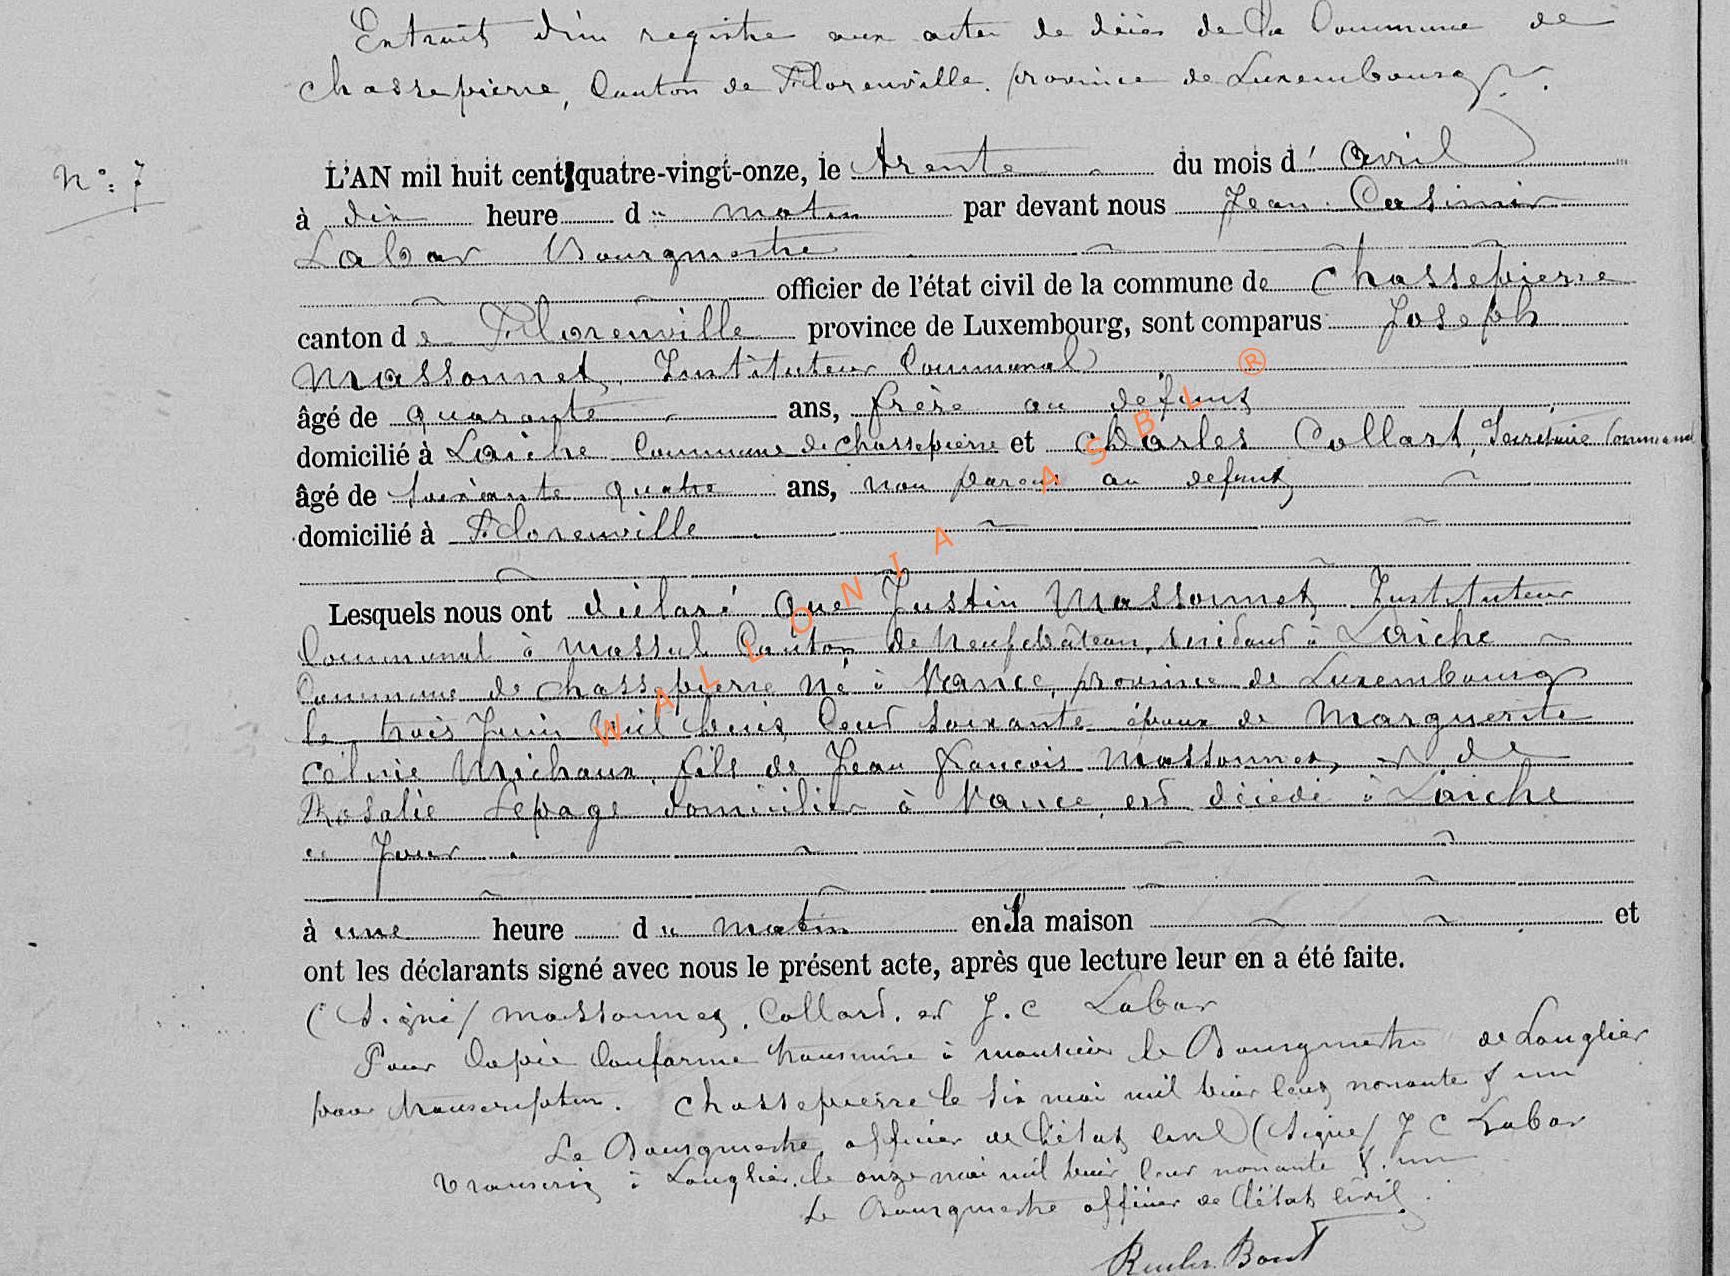 Extrait d'un registre aux actes de décès de la Commune de
Chassepierre, Canton de Florenville. province de Luxembourg.
N°: 7
L'AN mil huit cent quatre-vingt-onze, le trente du mois d' Avril
à dix heure du matin par devant nous Jean Casimir
Labar Bourgmestre
officier de l'état civil de la commune de Chassepierre
canton de Florenville province de Luxembourg, sont comparus Joseph
Massonnet, Instituteur Communal
âgé de quarante ans, frère au défunt
domicilié à Laiche Commune de Chassepierre et Charles Collart, Secrétaire Communal
âgé de soixante quatre ans, non parent au defunt,
domicilié à Florenville
Lesquels nous ont déclaré que Justin Massonnet Instituteur
Communal à Massul Canton de Neufchâteau, résidant à Laiche
Commune de Chassepierre né à Vance, province de Luxembourg
le trois Juin mil huit cent soixante époux de Marguerite
Célinie Michaux, fils de Jean François Massonnet, et de
Rosalie Lepage domiciliés à Vance, est décédé à Laiche
ce Jour
à une heure du matin en la maison et
ont les déclarants signé avec nous le présent acte, après que lecture leur en a été faite.
(Signé/ Massonnet, Collard. et J. C Labar
Pour Copie Conforme transmise à monsieur le Bourgmestre de Longlier
pour transcription. Chassepierre le six mai mil huit cent nonante & un
Le Bourgmestre, officier de l'état civil (Signé/ J C Labar
Transcrit à Longlier, le onze mai mil huit cent nonante & un
Le Bourgmestre officier de l'état civil.
WALLONIA ASBL ®